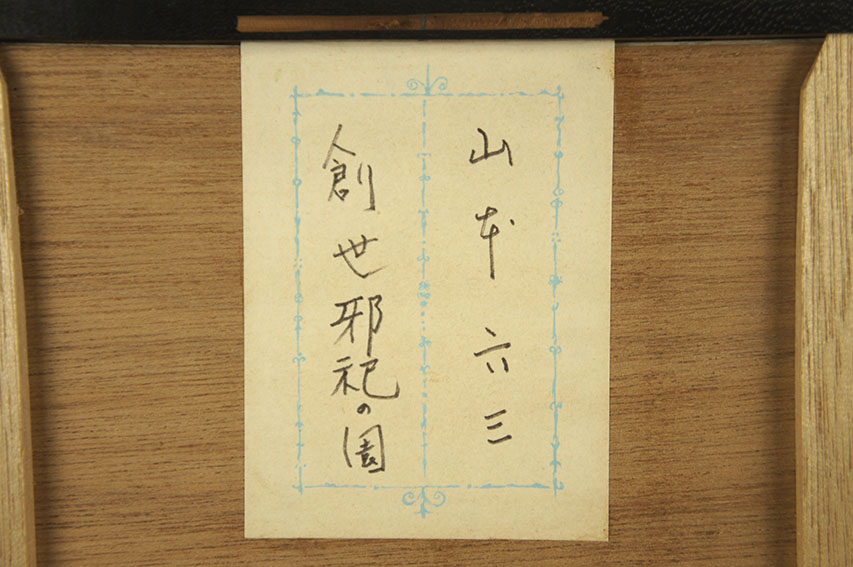 山本六三
創世邪祀の園